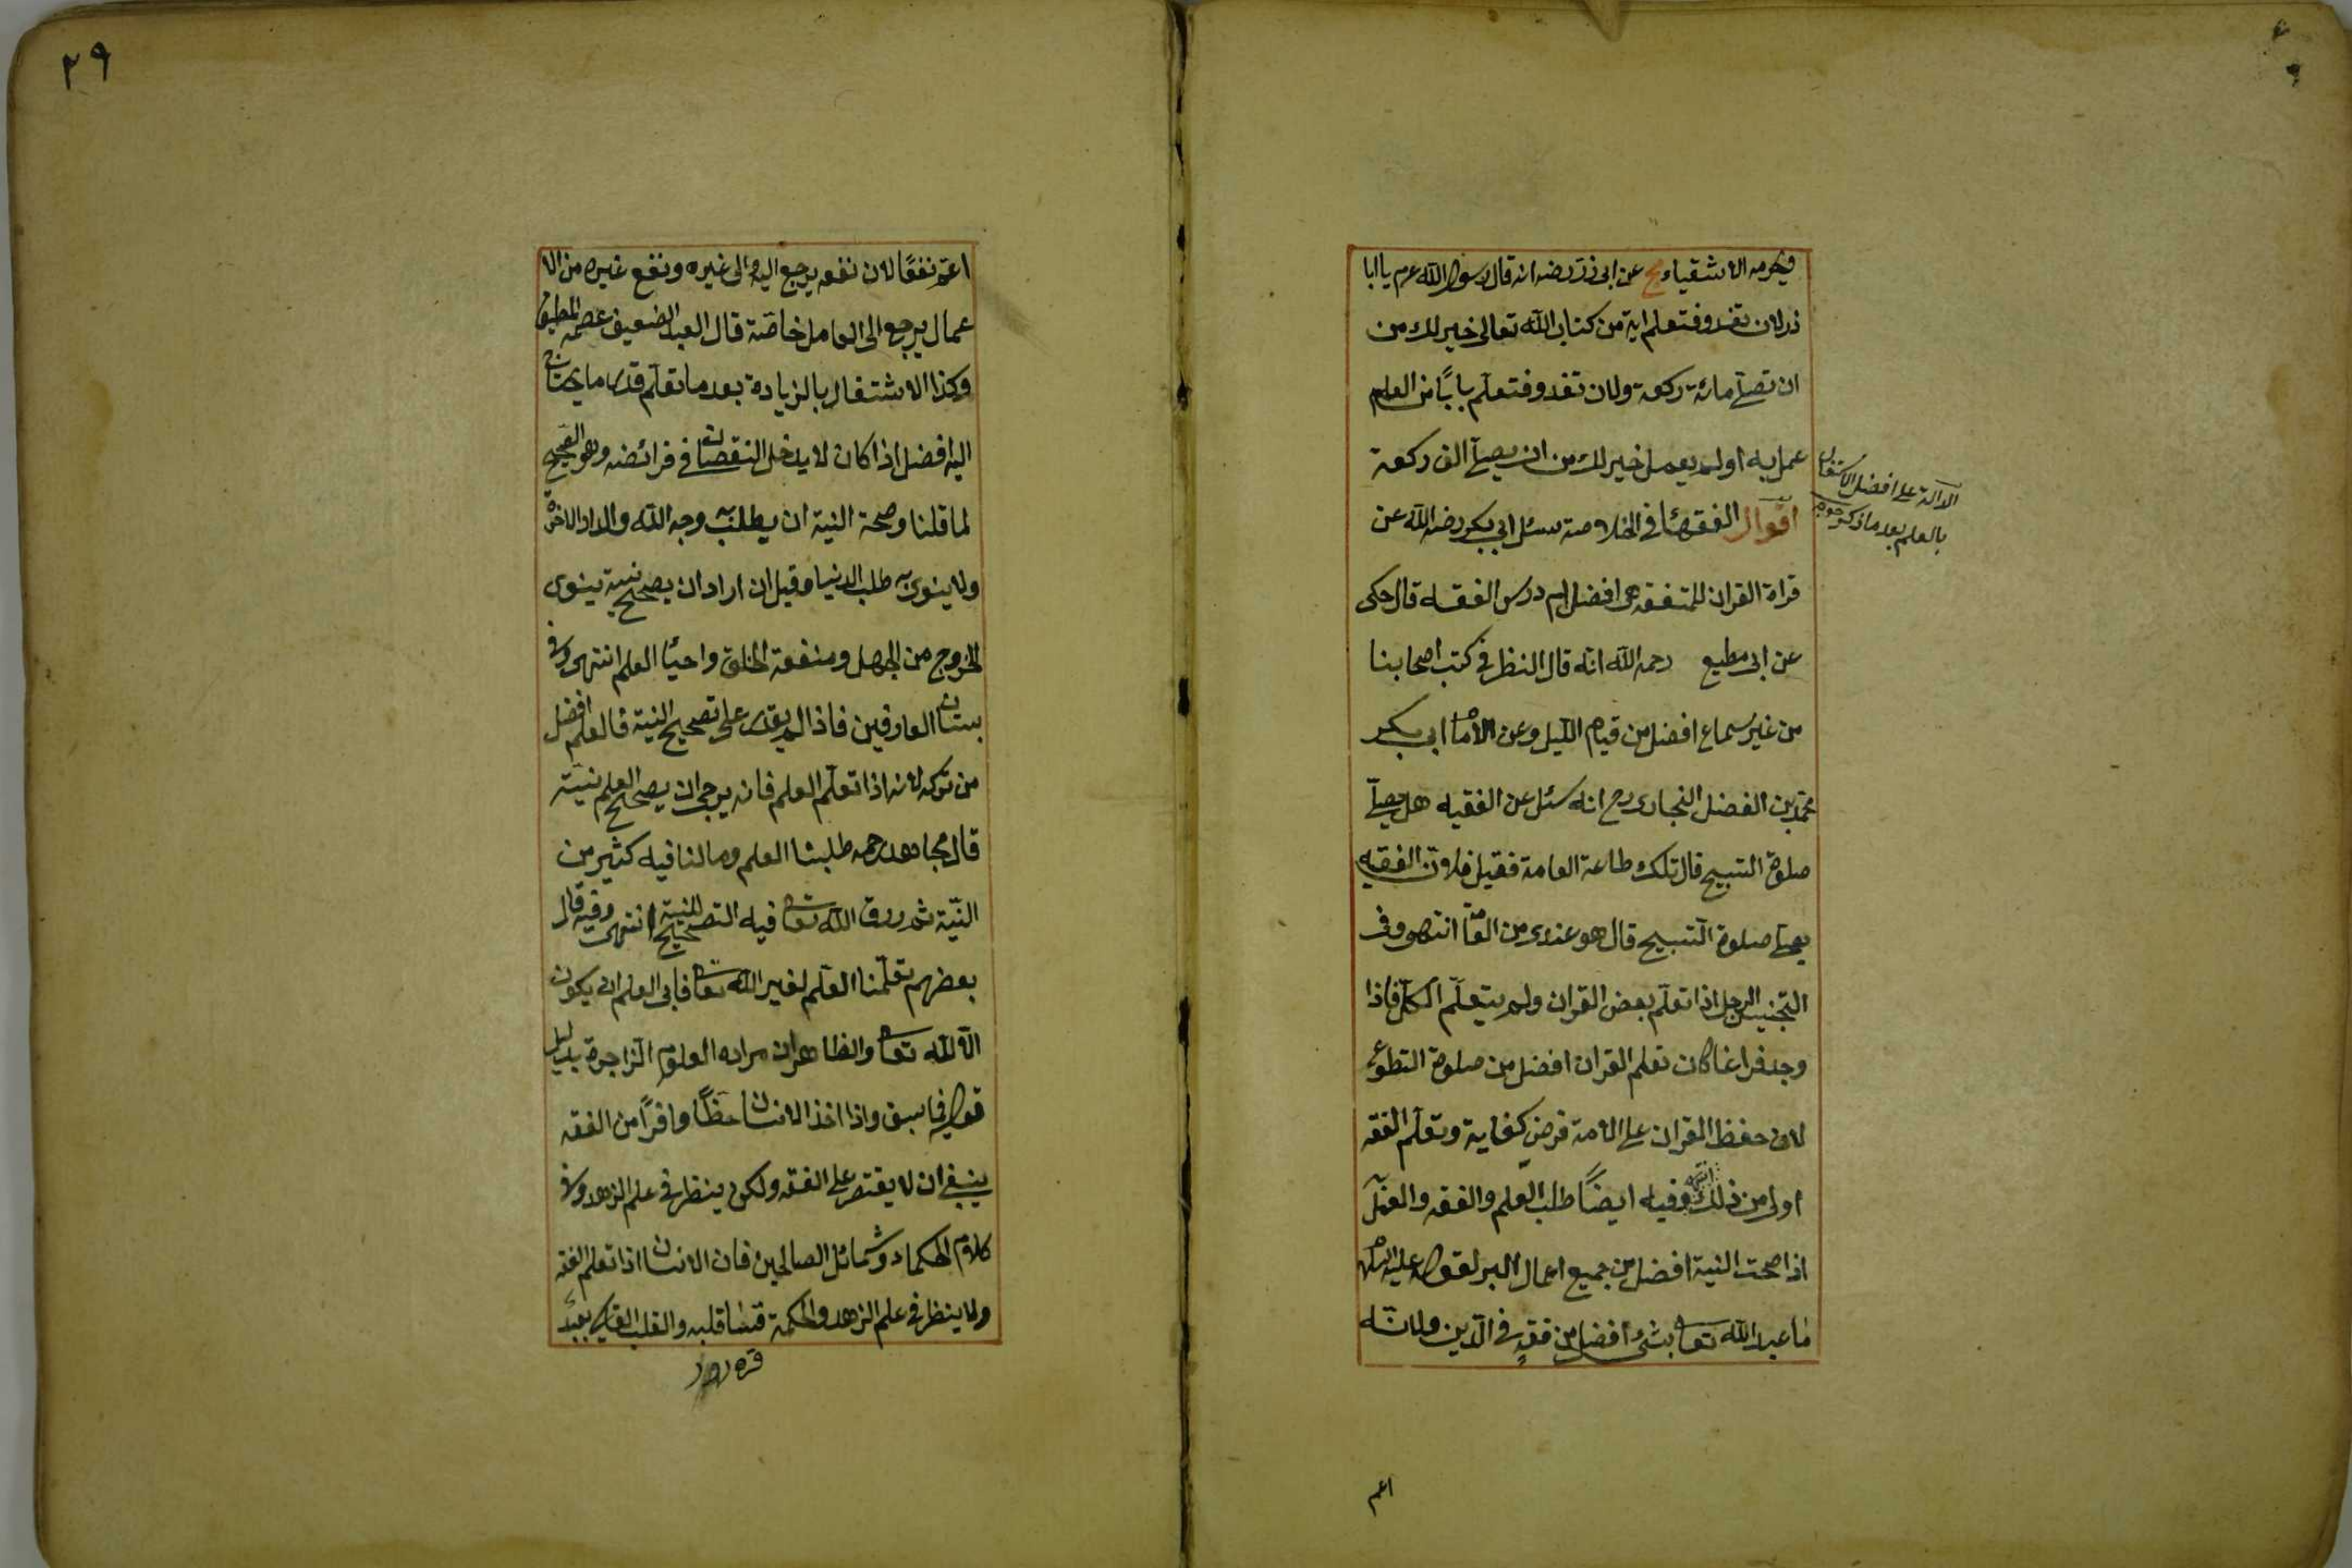 ويحرمه الاشقياء مج عن ابى ذر رضه انه قال رسول الله عم يا ابا
ذر لان تغدو فتعلم اية من كتاب الله تعالى خير لك من
ان تصلى مائة ركعة ولان تغدو فتعلم بابًا من العلم
عمل به اولم يعمل خير لك من ان يصلى الف ركعة
الدالة على افضل الاشتغال
بالعلم بعد ما ذكر
اقوال الفقهاء فى الخلاصة سئل ابى بكر رضه الله عن
قراة القران للمتفقه هى افضل ام درس الفقه قال حكى
عن ابى مطيع رحمه الله انه قال النظر فى كتب اصحابنا
من غير سماع افضل من قيام الليل وعن الامام ابى بكر
محمد بن الفضل البخارى رح انه سئل عن الفقيه هل يصلى
صلوة التسبيح قال تلك طاعة العامة فقيل فلان الفقيه
يصلى صلوة التسبيح قال هو عندى من العامة انتهى وفى
التجنيس الرجل اذا تعلم بعض القران ولم يتعلم الكل فاذا
وجد فراغا كان تعلم القران افضل من صلوة التطوع
لان حفظ القران على الامة فرض كفاية وتعلم الفقه
اولى من ذلك انتهى وفيه ايضًا طلب العلم والفقه والعمل
اذا صحت النية افضل من جميع اعمال البر لقوله عليه السلم
ما عبد الله تعالى بشئ افضل من فقه فى الدين ولانه
اعم
٢٩
اعم نفعًا لان نفعه يرجع اليه والى غيره ونفع غيره من الا
عمال يرجع الى العامل خاصة قال العبد الضعيف عصمه
وكذا الاشتغال بالزيادة بعد ما تعلم قدر ما يحتاج
اليه افضل اذا كان لا يدخل النقصان فى فرائضه وهو الصحيح
لما قلنا وصحة النية ان يطلب به وجه الله والدار الاخرة
ولا ينوى به طلب الدنيا وقيل ان اراد ان يصحح نيته ينوى
الخروج من الجهل ومنفعة الخلق واحياء العلم انتهى وفى
بستان العارفين فاذا لم يقدر على تصحيح النية فالعلم افضل
من تركه لانه اذا تعلم العلم فانه يرجى ان يصحح العلم نيته
قال مجاهد رحمه طلبنا العلم ومالنا فيه كثير من
النية ثم رزق الله تعالى فيه التصحيح للنية انتهى وفيه قال
بعضهم تعلمنا العلم لغير الله تعالى فابى العلم ان يكون
الا لله تعالى والظاهر ان مراده العلوم الزاجرة بدليل
قوله فيما سبق واذا اخذ الانسان حظًا وافرًا من الفقه
ينبغى ان لا يقتصر على الفقه ولكن ينظر فى علم الزهد وفى
كلام الحكماء وشمائل الصالحين فان الانسان اذا تعلم الفقه
ولا ينظر فى علم الزهد والحكمة قسا قلبه والقلب القاسى بعيد